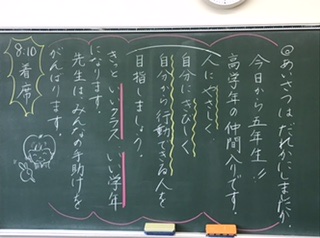 ◎あいさつはだれかにしましたか。
今日から五年生!!
高学年の仲間入りです。
人にやさしく
自分にきびしく
自分から行動できる人を
目指しましょう。
きっといいクラス いい学年
になります。
先生はみんなの手助けを
がんばります。
8:10
着席